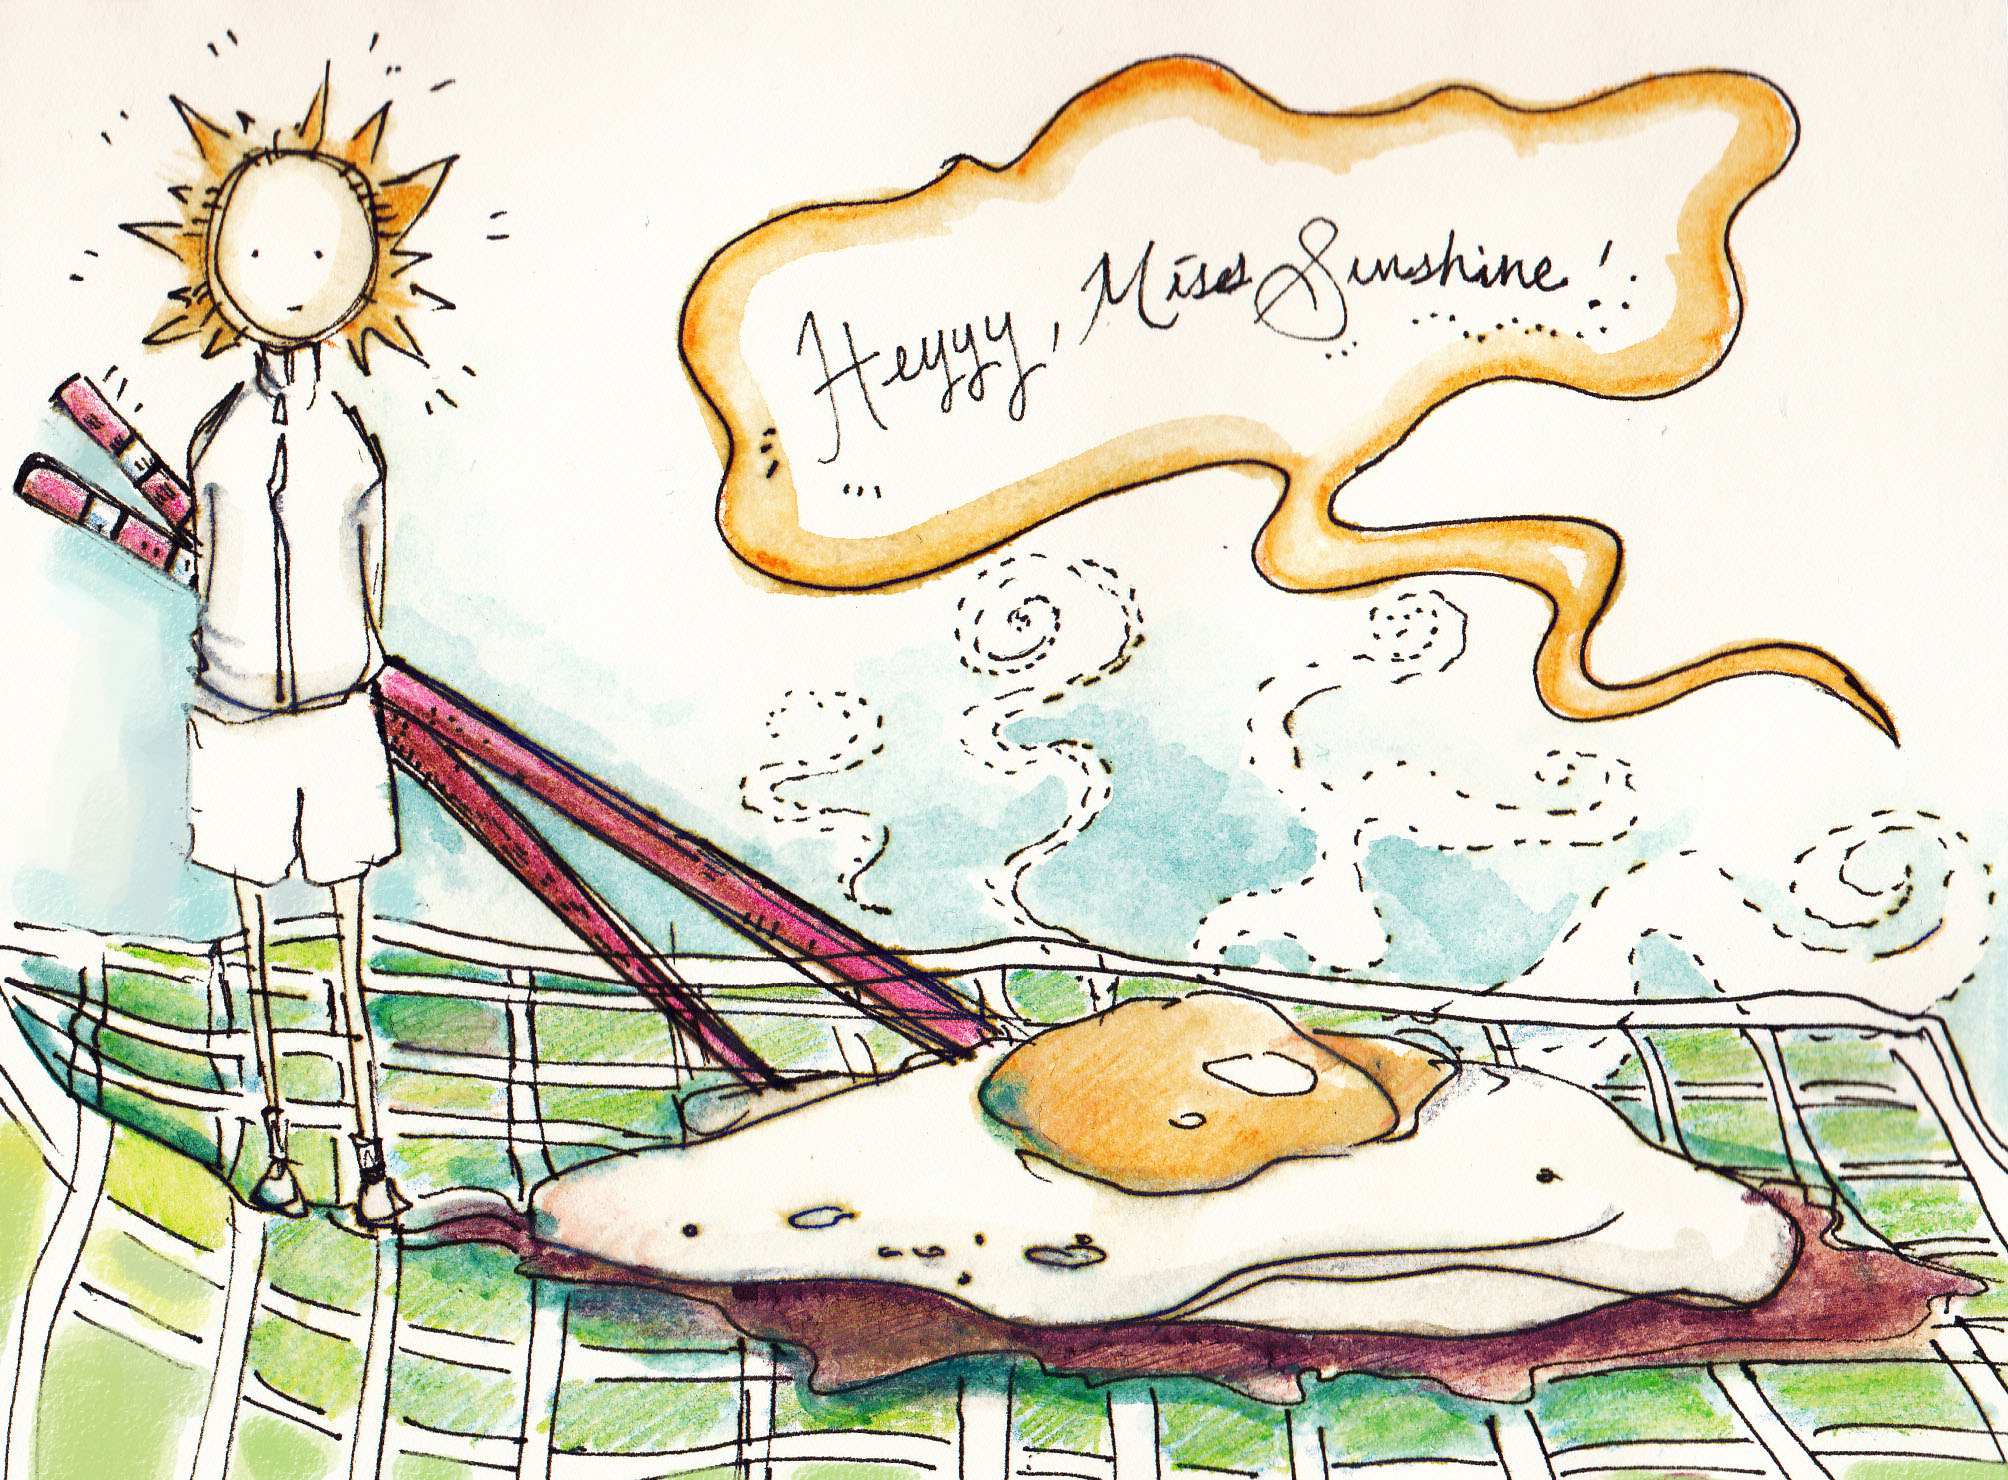 Heyyy, Miss Sunshine!